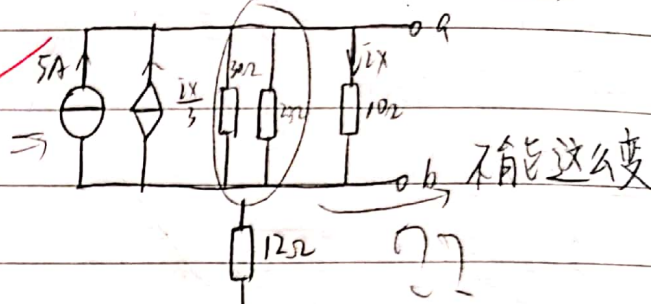 a
5A
ix/3
30Ω
ix
10Ω
⇒
b 不能这么变
12Ω
??